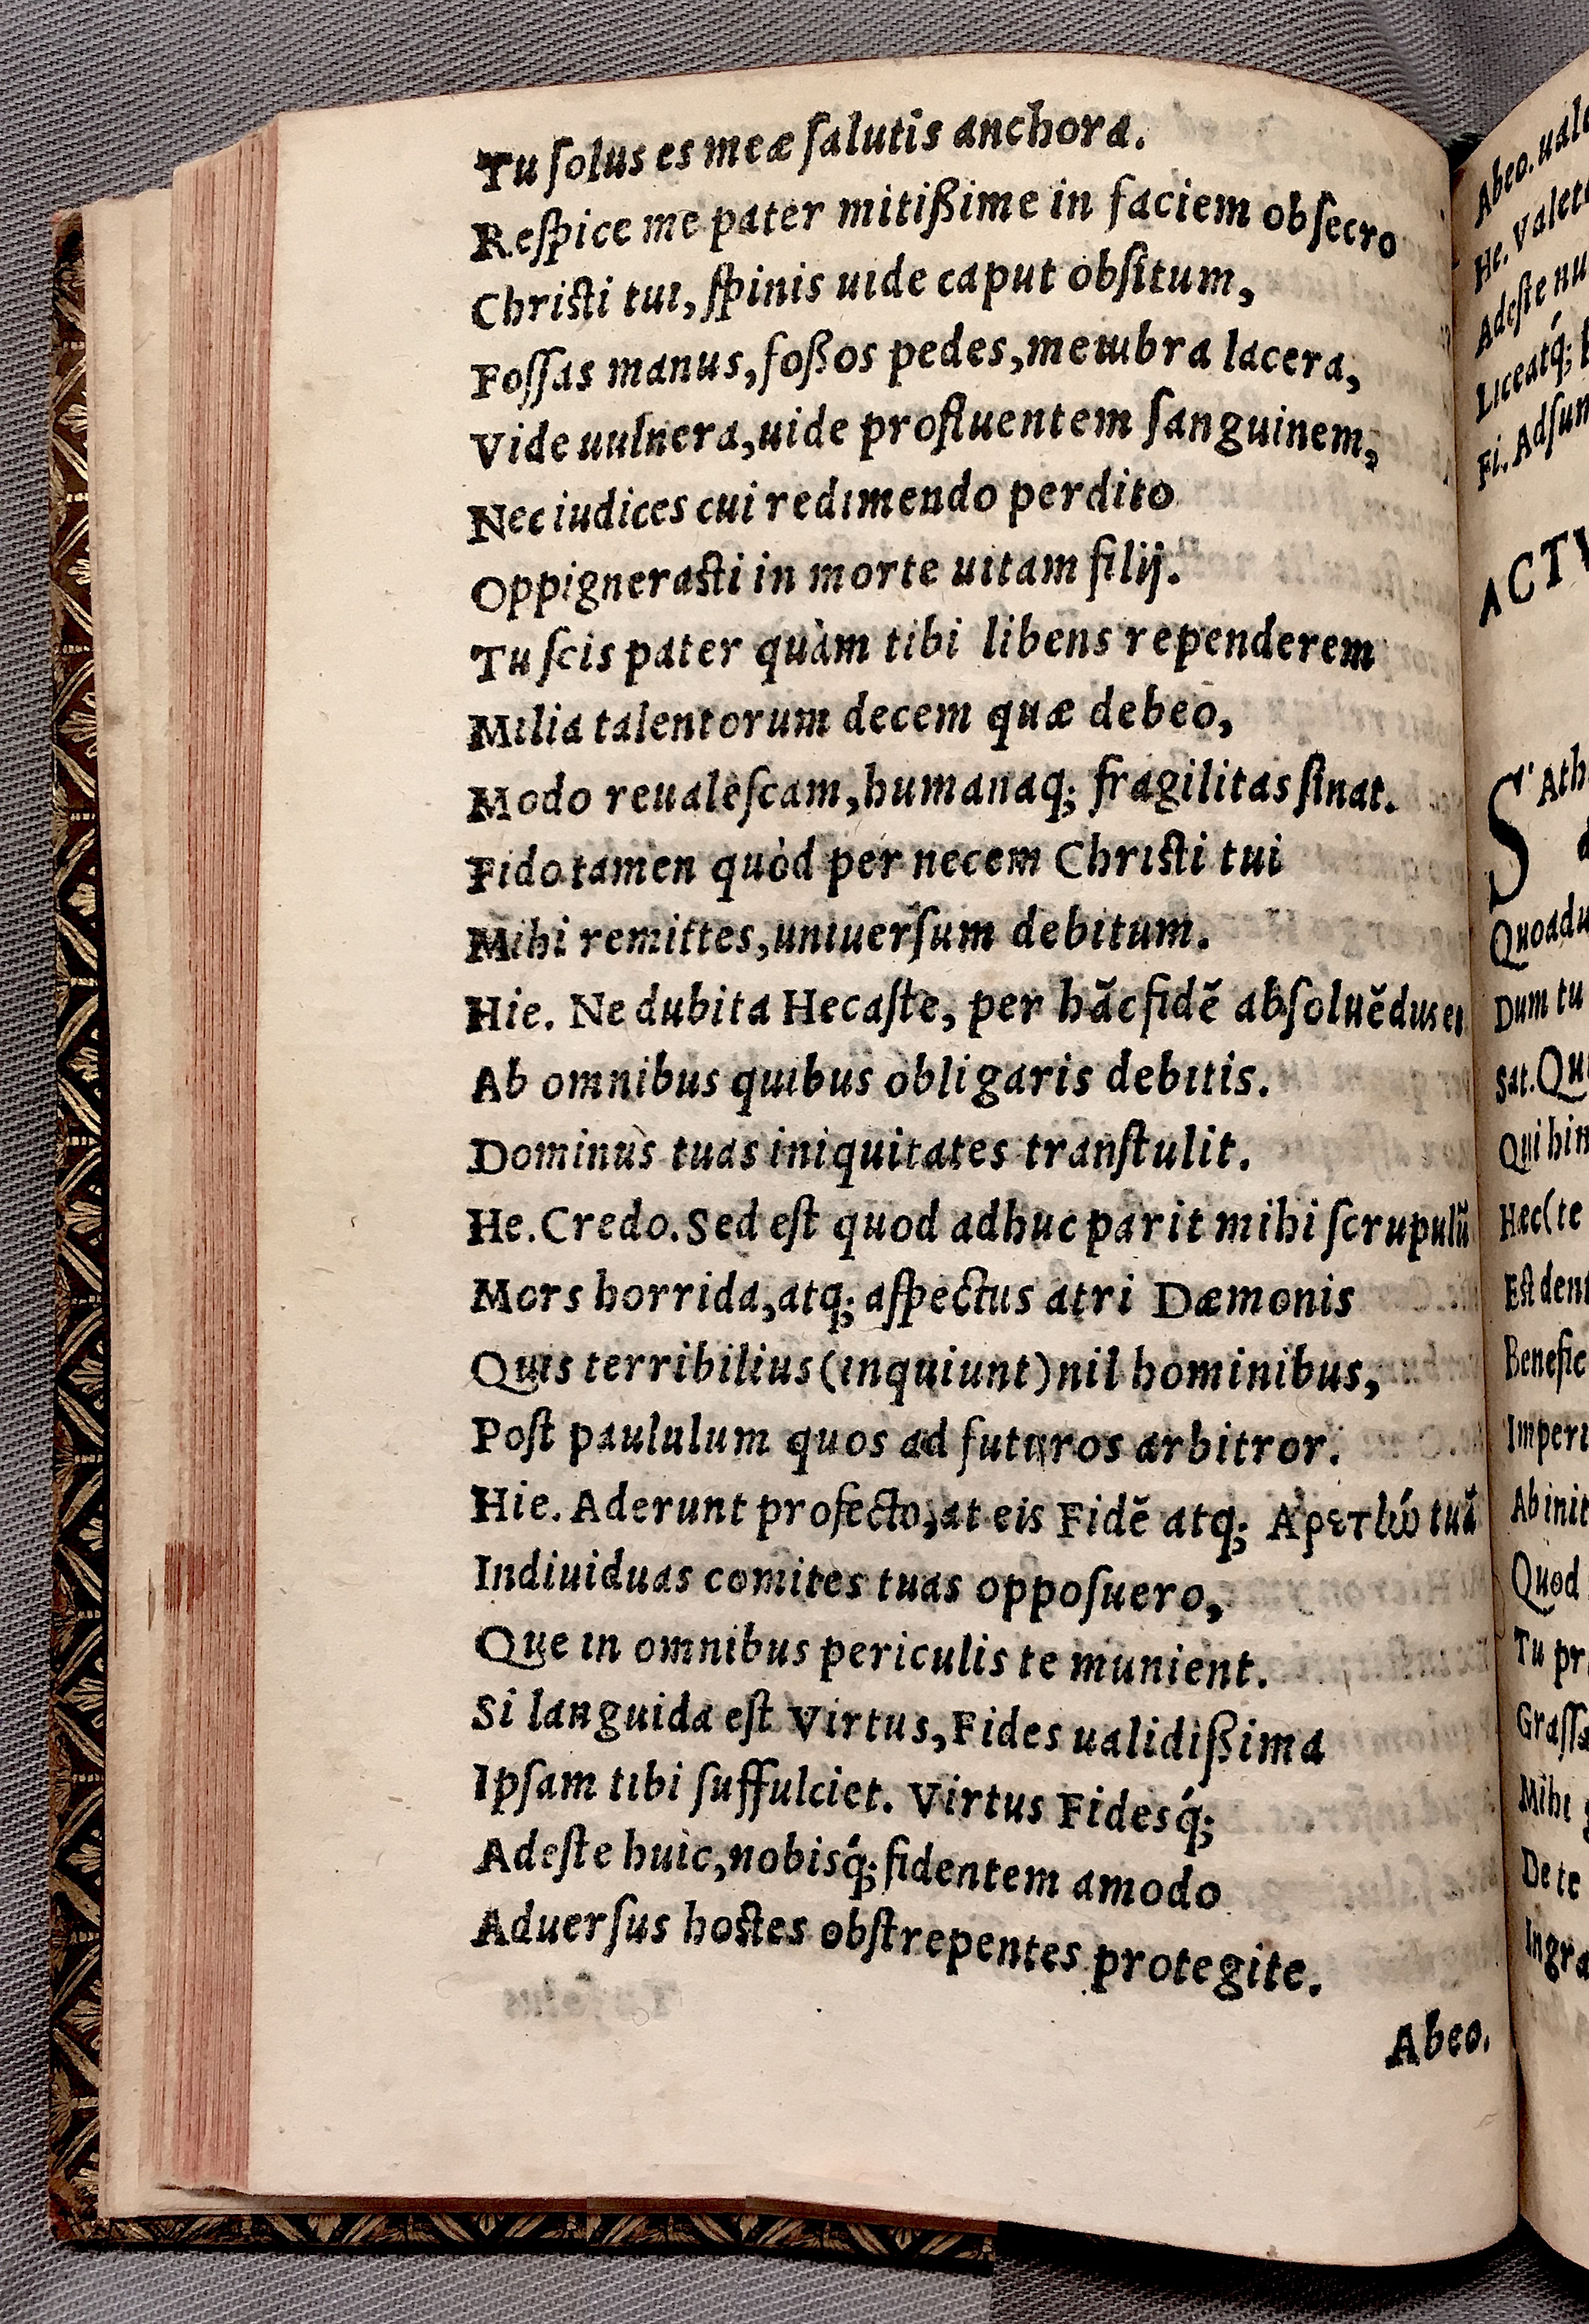 Tu ſolus es meæ ſalutis anchora.
Reſpice me pater mitißime in faciem obſecro
Chriſti tui, ſpinis uide caput obſitum,
Foſſas manus, foßos pedes, membra lacera,
Vide uulnera, uide profluentem ſanguinem,
Nec iudices cui redimendo perdito
Oppigneraſti in morte uitam filij.
Tu ſcis pater quàm tibi libens rependerem
Milia talentorum decem quæ debeo,
Modo reualeſcam, humanaq; fragilitas ſinat.
Fido tamen quòd per necem Chriſti tui
Mihi remittes, uniuerſum debitum.
Hie. Ne dubita Hecaſte, per hãc fidẽ abſoluẽdus es
Ab omnibus quibus obligaris debitis.
Dominus tuas iniquitates tranſtulit.
He. Credo. Sed eſt quod adhuc parit mihi ſcrupulũ
Mors horrida, atq; aſpectus atri Dæmonis
Quis terribilius (inquiunt) nil hominibus,
Poſt paululum quos ad futuros arbitror.
Hie. Aderunt profecto, at eis Fidẽ atq; Αρετἰὼ tuã
Indiuiduas comites tuas oppoſuero,
Que in omnibus periculis te munient.
Si languida eſt Virtus, Fides ualidißima
Ipſam tibi ſuffulciet. Virtus Fidesq́;
Adeſte huic, nobisq́; fidentem amodo
Aduerſus hoſtes obſtrepentes protegite.
Abeo.
Abeo. ual
He. Valet
Adeſte nu
Liceatq́;
Fi. Adſun
ACTV
SAth
Quoadu
Dum tu
Sat. Qui
Qui hin
Hæc te
Eſt dent
Benefic
Imperi
Ab init
Quod
Tu pr
Graſſa
Mihi
De te
Ingra